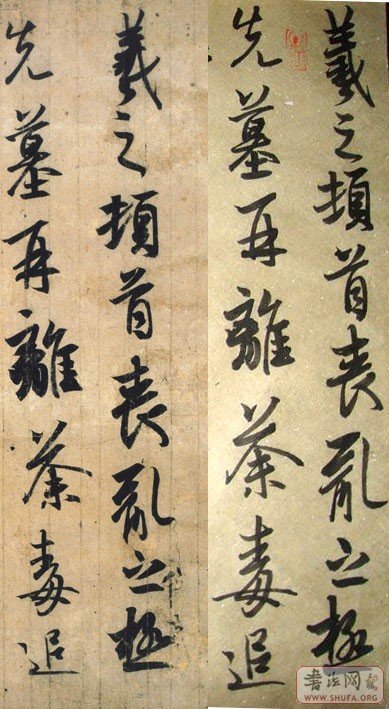 羲之頓首喪亂之極
先墓再離荼毒追
羲之頓首喪亂之極
先墓再離荼毒追
書法网
WWW.SHUFA.ORG